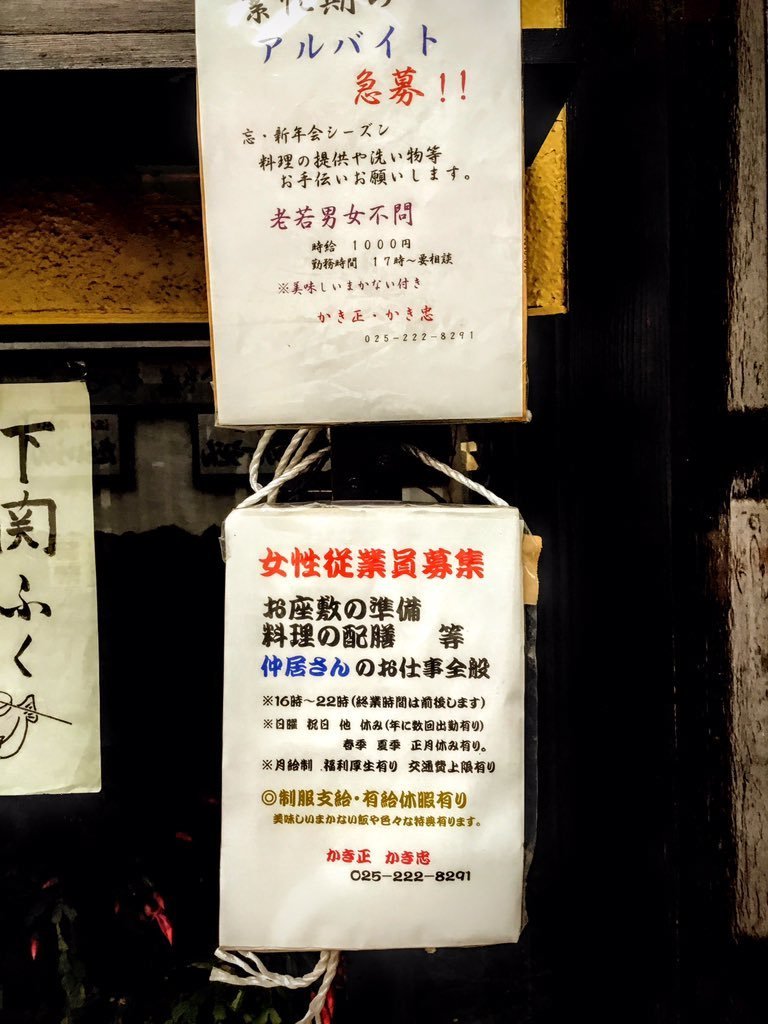 繁忙期の
アルバイト
急募!!
忘・新年会シーズン
料理の提供や洗い物等
お手伝いお願いします。
老若男女不問
時給 1000円
勤務時間 17時〜要相談
※美味しいまかない付き
かき正・かき忠
025-222-8291
下関ふく
女性従業員募集
お座敷の準備
料理の配膳 等
仲居さんのお仕事全般
※16時〜22時(終業時間は前後します)
※日曜 祝日 他 休み(年に数回出勤有り)
春季 夏季 正月休み有り。
※月給制 福利厚生有り 交通費上限有り
◎制服支給・有給休暇有り
美味しいまかない飯や色々な特典有ります。
かき正 かき忠
025-222-8291